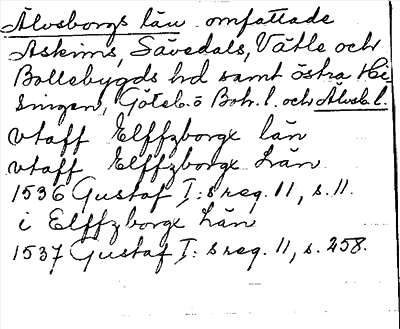 Älvsborgs län omfattade
Askims, Sävedals, Vätle och
Bollebygds hd samt östra Hi-
singen, Göteb. o Boh. l. och Älvsb. l.
vtaff Elffzborgx län
vtaff Elffzborgx Län
1536 Gustaf I:s reg. 11, s. 11.
i Elffzborgx Län
1537 Gustaf I:s reg. 11, s. 258.